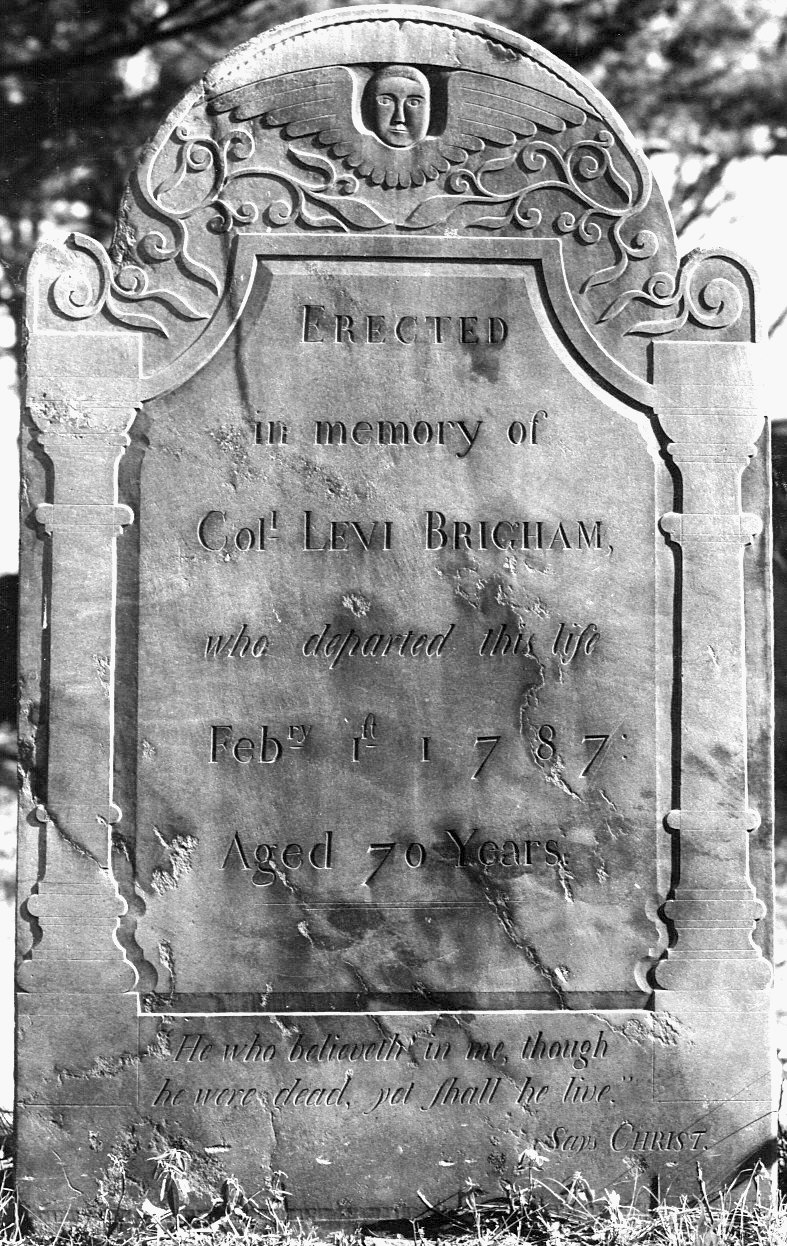 ERECTED
in memory of
Colˡ LEVI BRIGHAM,
who departed this life
Febʳʸ 1ſᵗ 1787:
Aged 70 Years.
"He who believeth in me, though
he were dead, yet ſhall he live."
Says CHRIST.